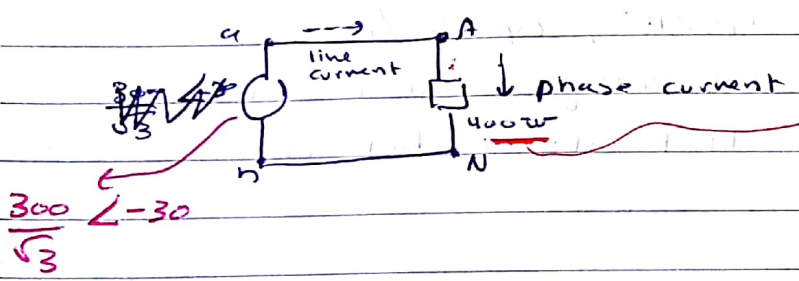 a ---> A
line
current
phase current
400W
n N
300 ∠-30
√3